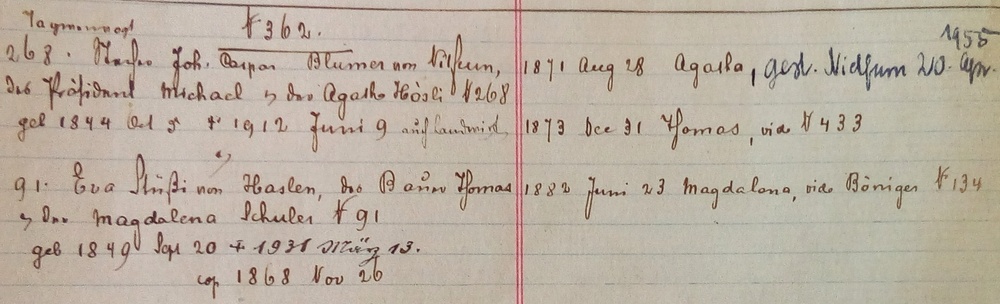 Tagmenvogt
N 362.
268. Joh. Caspar Blumer von Nitfurn,
des Präsident Michael & der Agatha Hösli N 268
geb 1844 Oct 5 + 1912 Juni 9 auch Landwirt
91. Eva Stüßi von Haslen, des Bauer Thomas
& der Magdalena Schuler N 91
geb 1849 Sept 20 + 1931 März 13.
cop 1868 Nov 26
1955
1871 Aug 28 Agatha, gest. Nidfurn 20. Apr.
1873 Dec 31 Thomas, vide N 433
1882 Juni 23 Magdalena, vide Böniger N 134